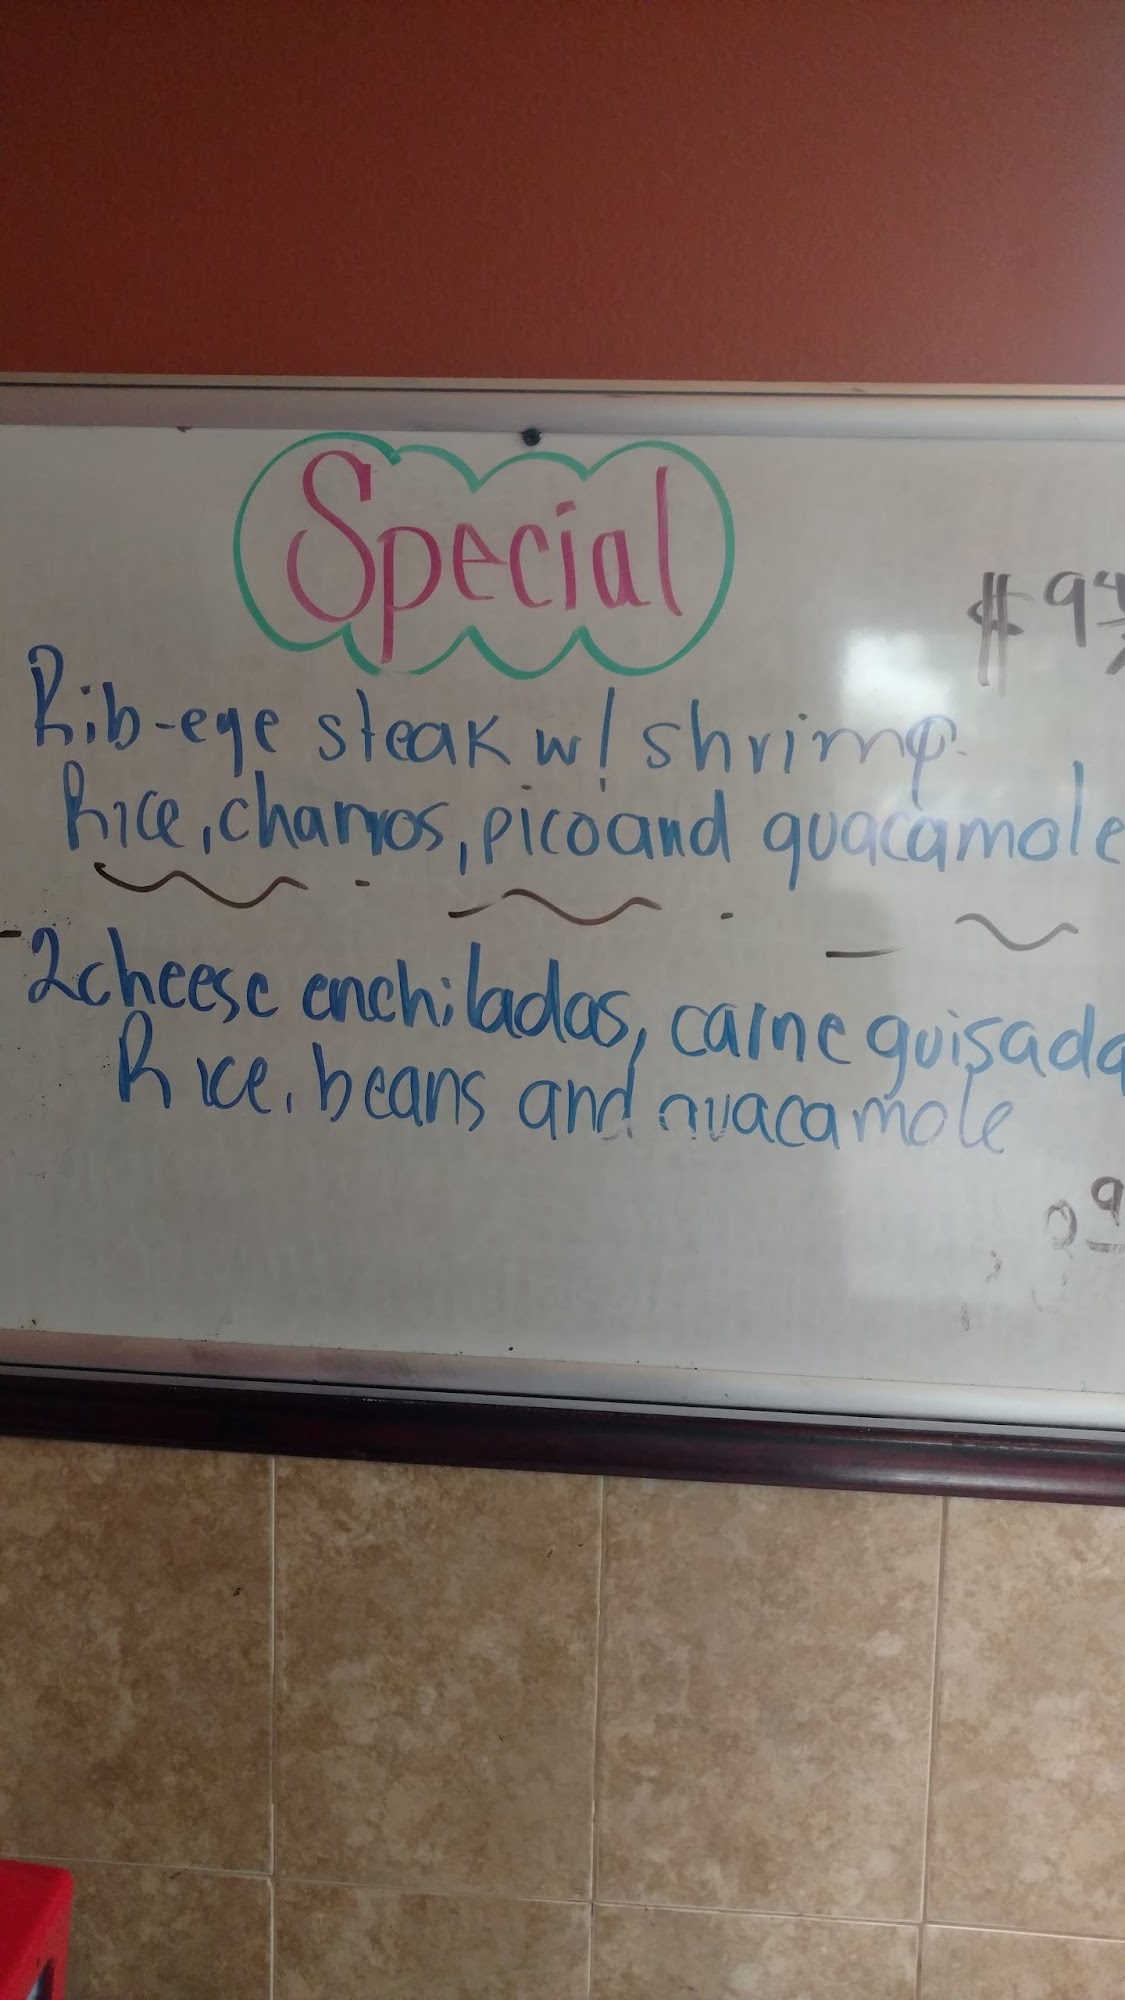 Special
Rib-eye steak w/ shrimp
Rice, charros, pico and guacamole
2 cheese enchiladas, carne guisada
Rice, beans and guacamole